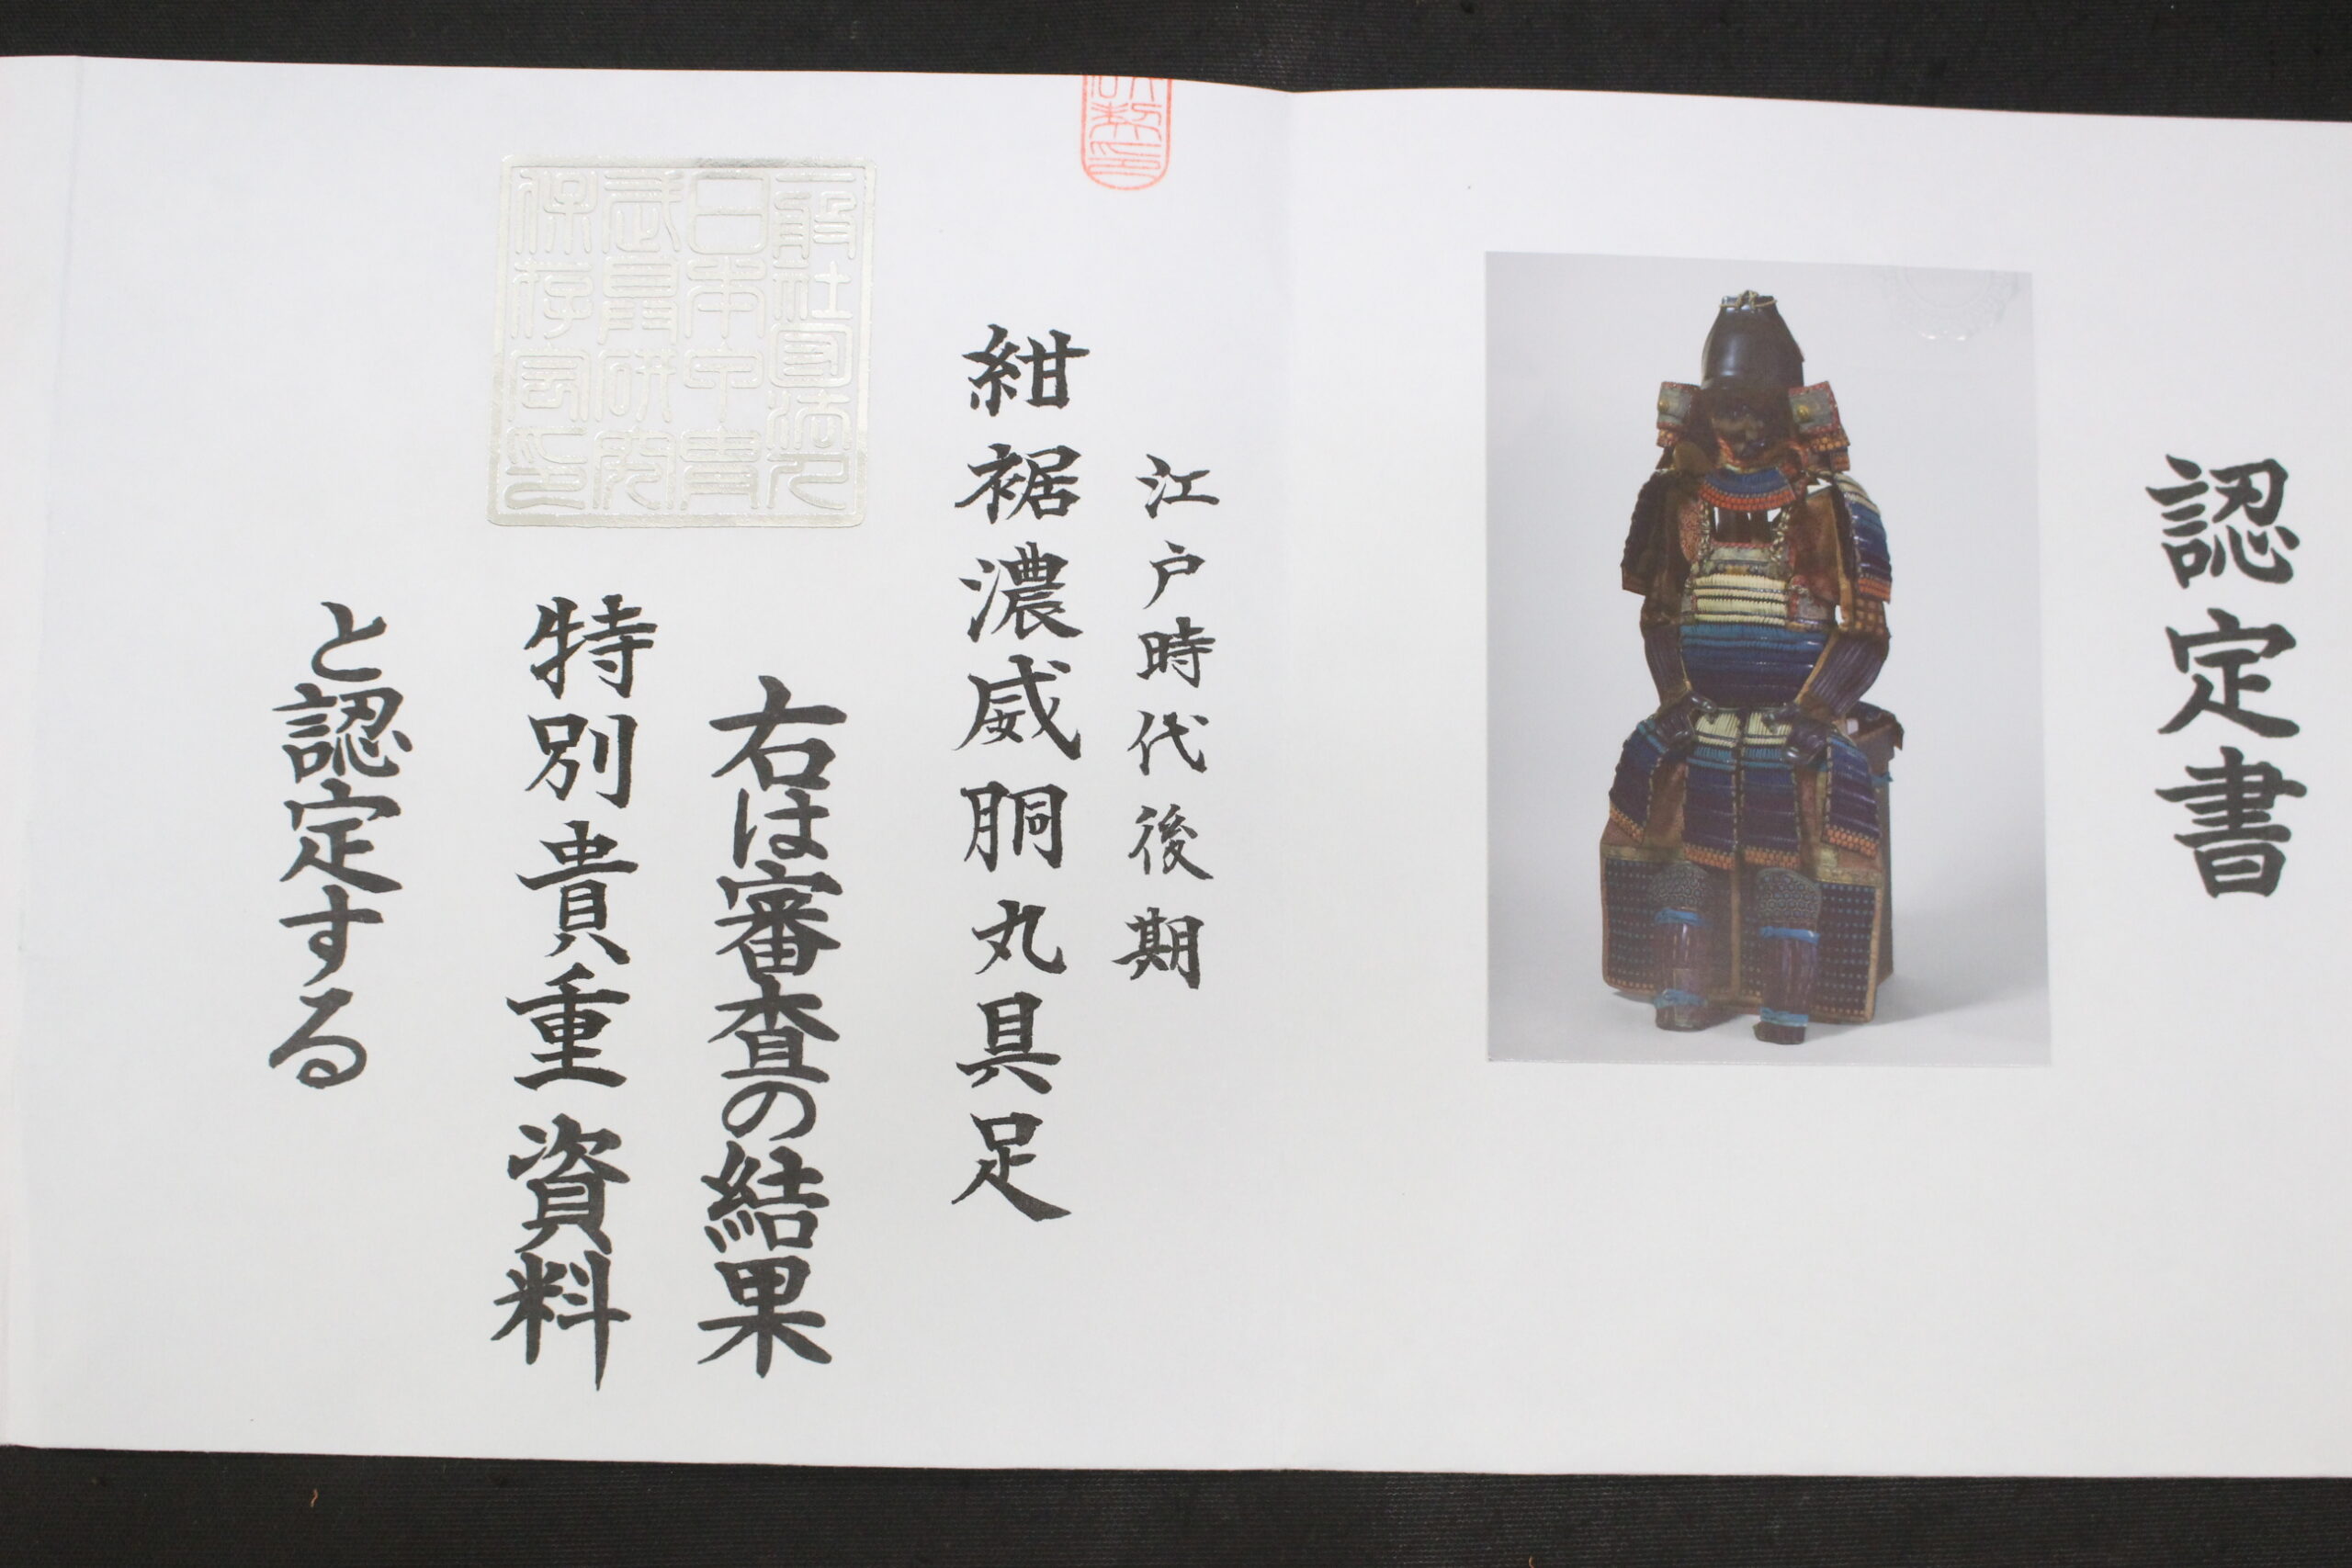 認定書
江戸時代後期
紺裾濃威胴丸具足
右は審査の結果
特別貴重資料
と認定する
一般社団法人
日本甲冑
武具研究
保存会印